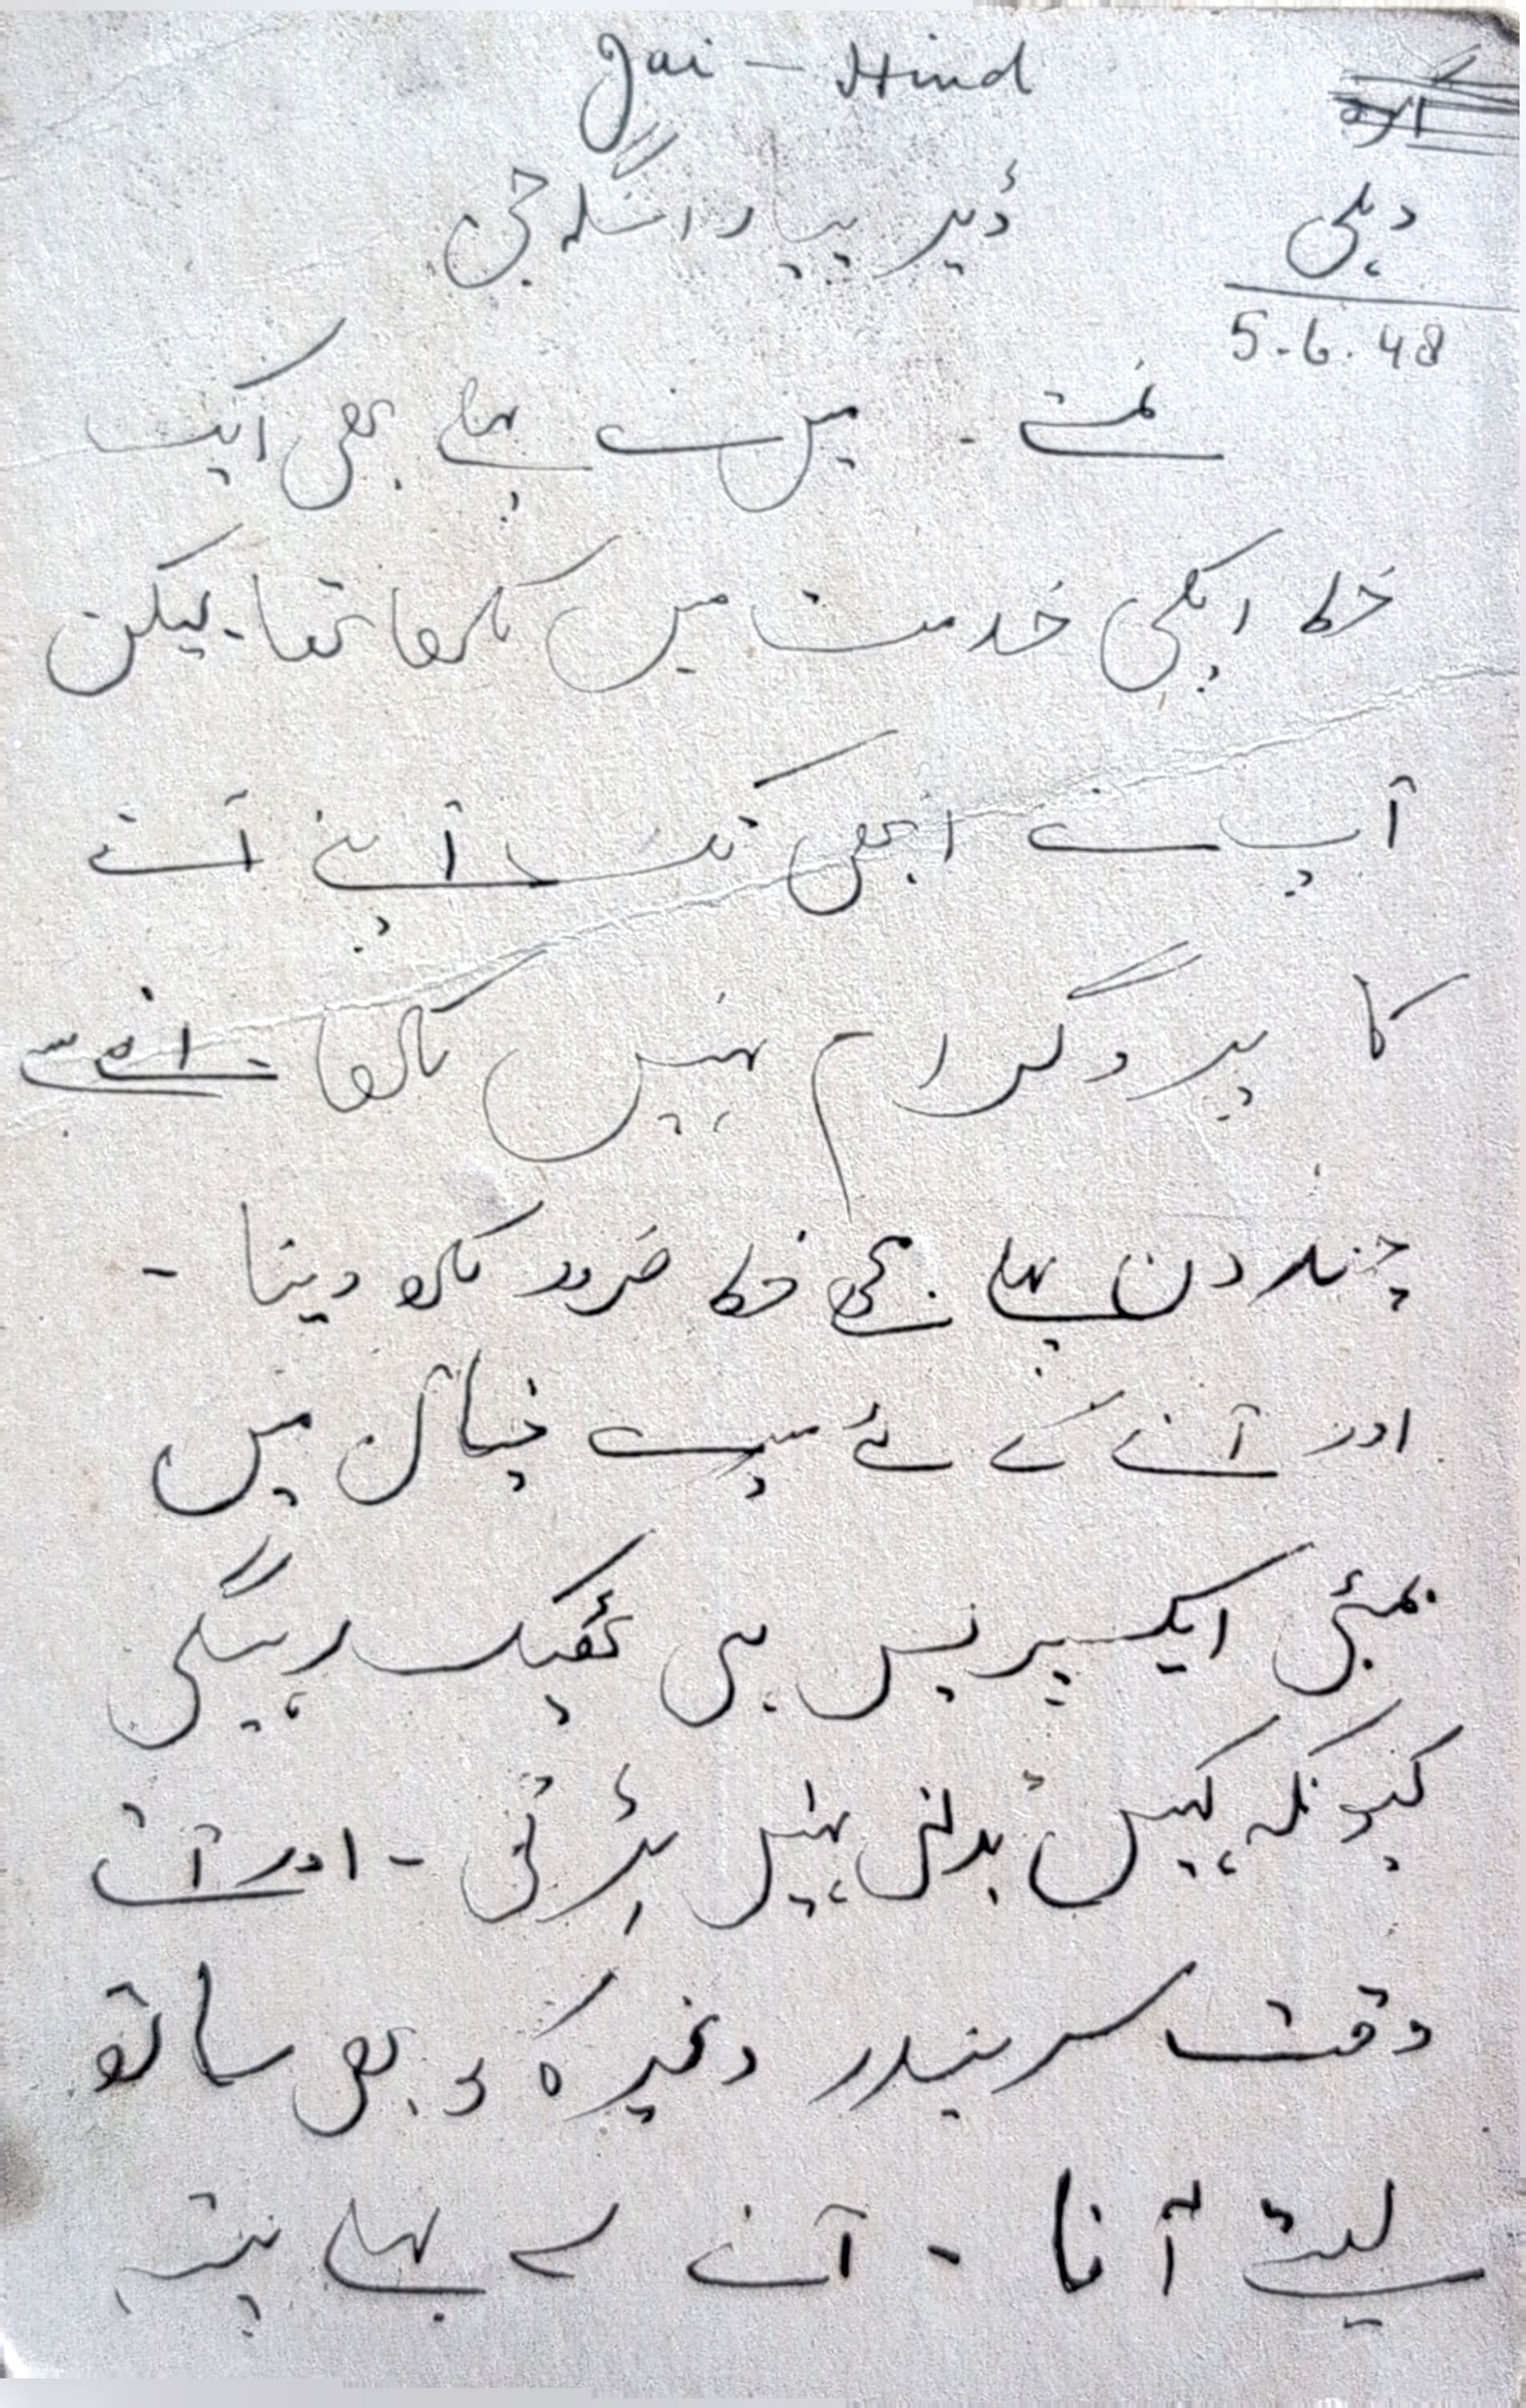 Jai - Hind
دہلی
5.6.48
ڈیر پیارا سنگھ جی
نمستے - میں نے پہلے بھی ایک
خط اپکی خدمت میں لکھا تھا۔ لیکن
آپ نے ابھی تک اپنے آنے
کا پروگرام نہیں لکھا - آنے سے
چند دن پہلے مجھے خط ضرور لکھ دینا -
اور آنے کے لئے میرے خیال میں
بمبئی ایکسپریس ہی ٹھیک رہیگی
کیونکہ کہیں بدلنی نہیں پڑتی - اور آتے
وقت سریندر وغیرہ کو بھی ساتھ
لیتے آنا - آنے سے پہلے پتہ